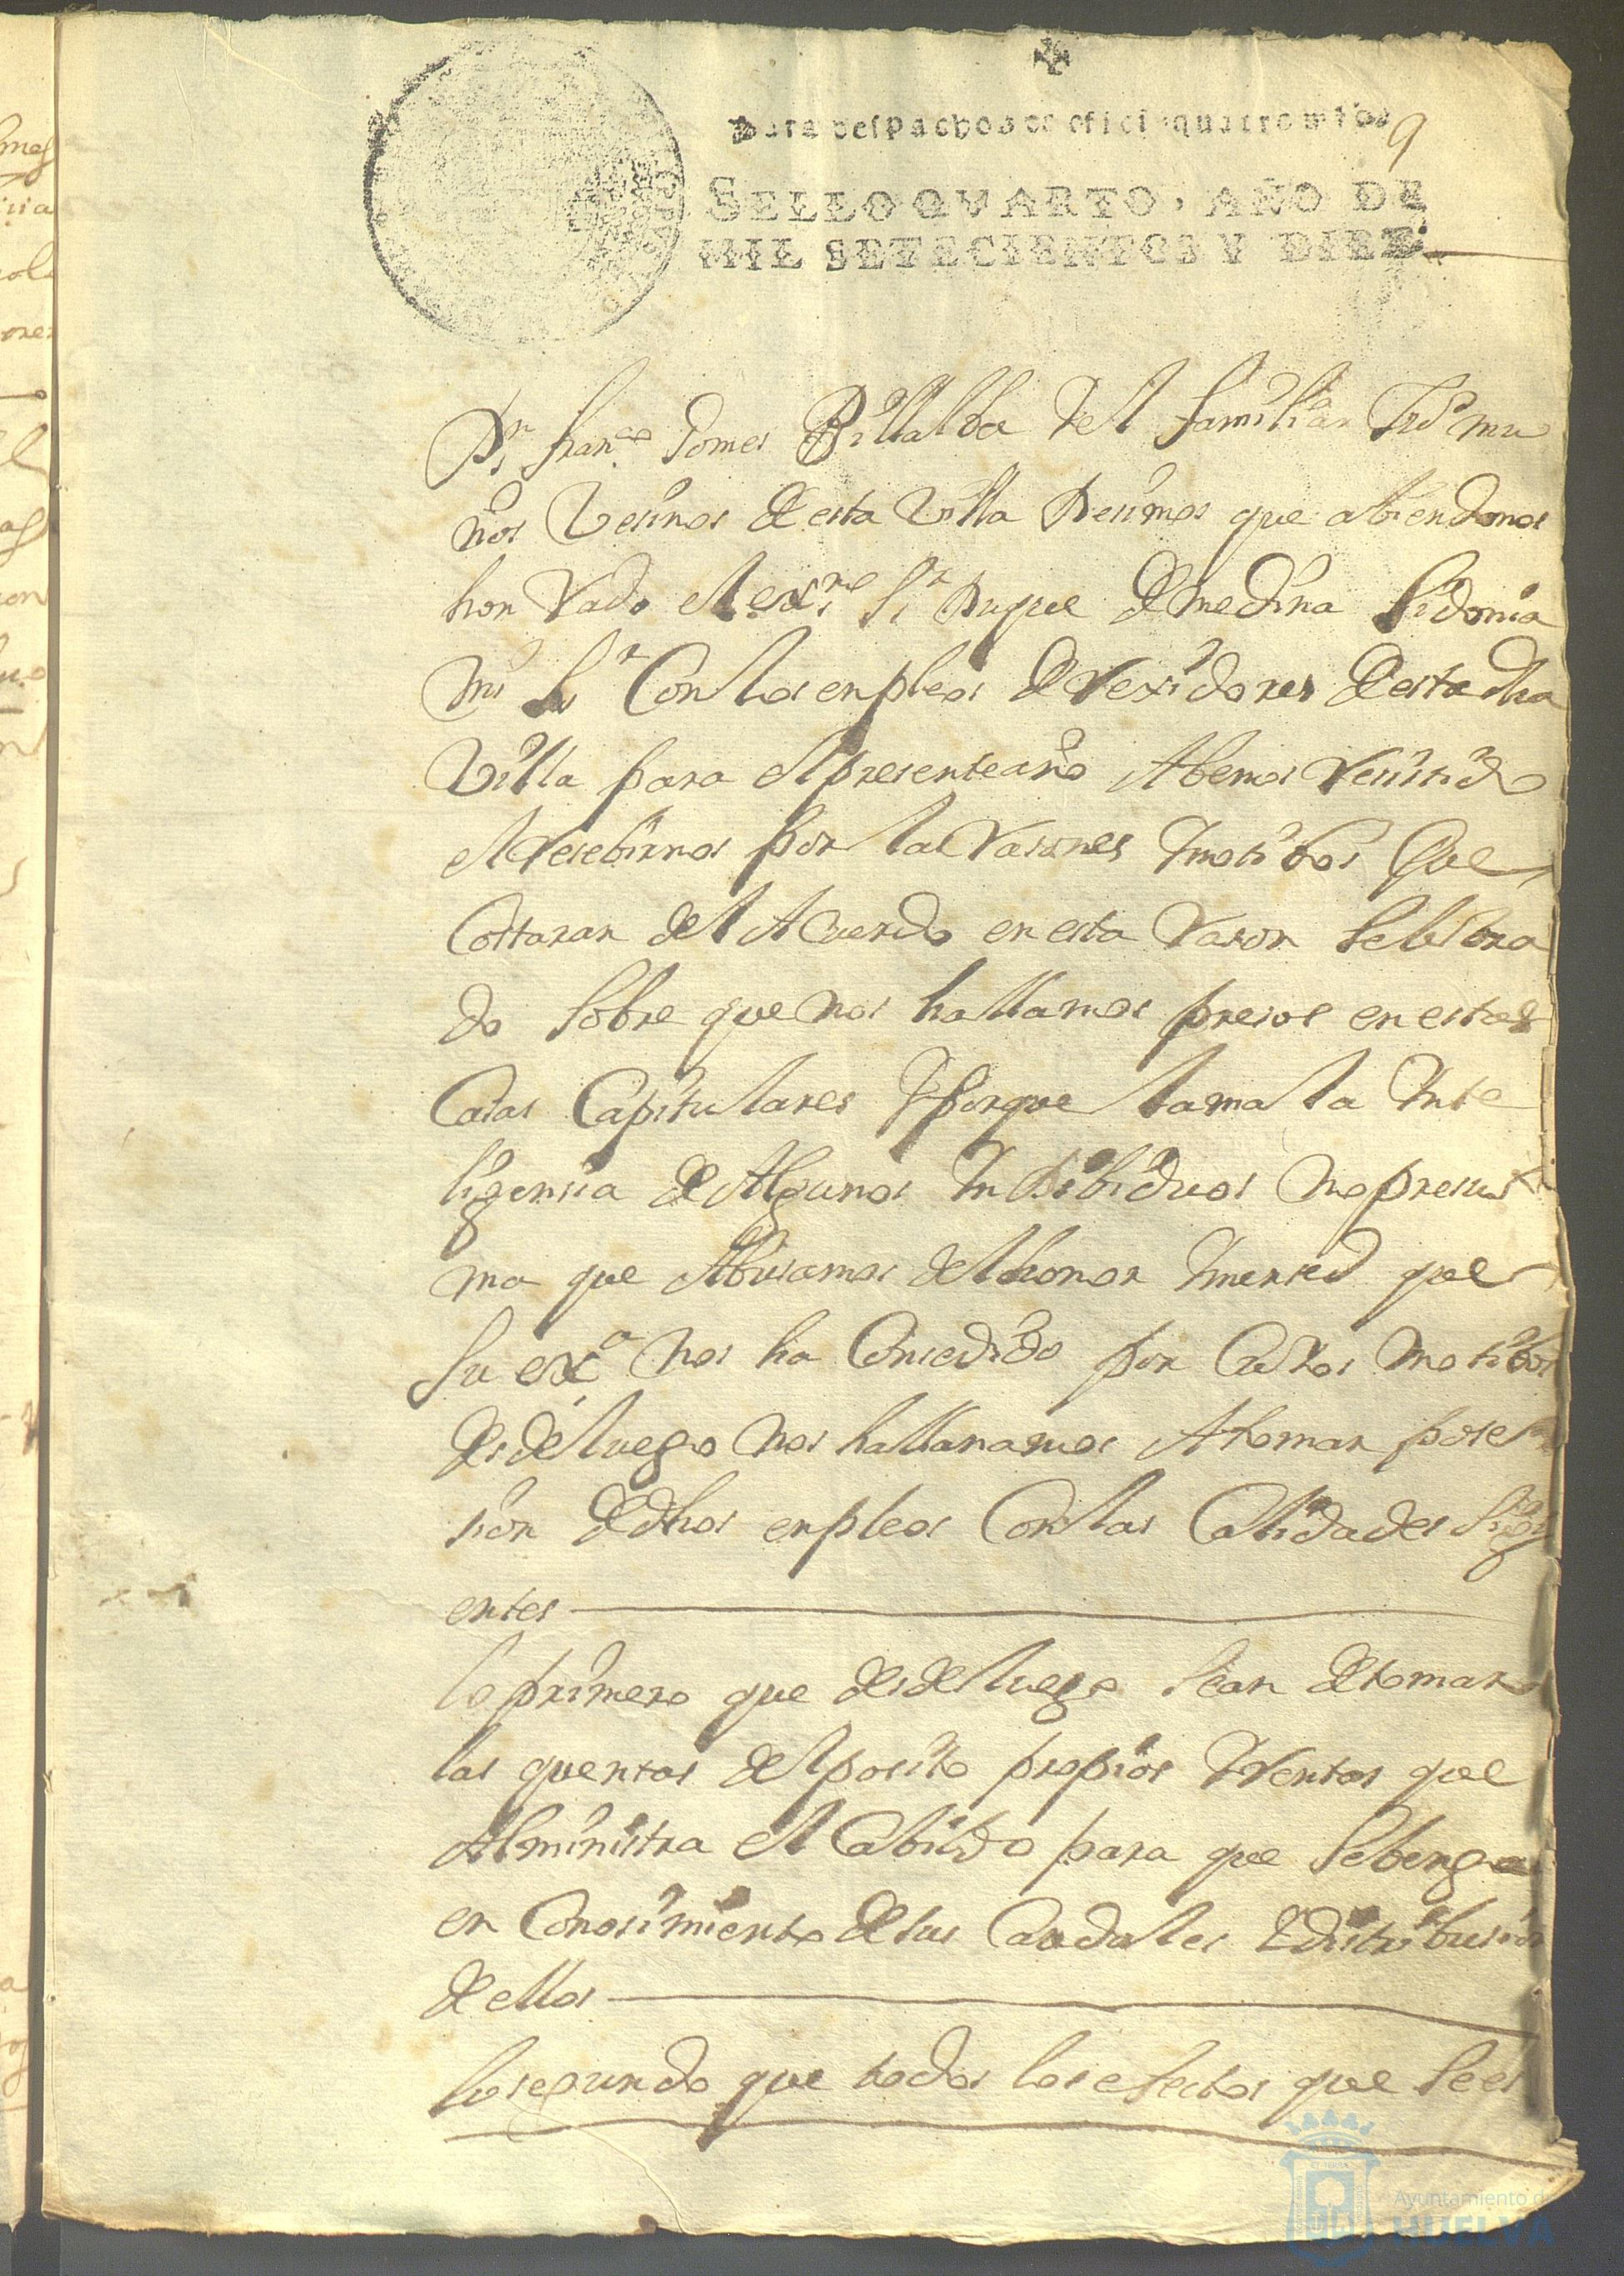 Para despachos de oficio quatro mrs
9
SELLO QVARTO, AÑO DE
MIL SETECIENTOS Y DIEZ.
Dn franco Gomes Billalba del familiar
ños Vesinos de esta Villa Desimos que abiendonos
hon Rado el exmo Sr Duque de medina Sidonia
mi Sr Con los enpleos de Rexidores de esta dha
Villa para el presente año Abemos Resistido
el Resebirnos por las Rasones Y motibos Que
Costaran del ACuerdo en esta Rason Selebra
do Sobre que nos hallamos presos en estas
Casas Capitulares Y porque la mala Ynte
ligensia de Algunos Yndibiduos no presu
ma que Abusamos del honor Y mersed que
Su exa nos ha Consedido por Cuios motibos
desde luego nos hallanamos A tomar pose
sion de dhos enpleos Con las Calidades Sigi
entes
lo primero que desde luego Sean de tomar
las quentas del posito propios Y Rentas que
Alministra el Cabildo para que Se benga
en Conosimiento de sus Caudales E distribusion
de ellos
lo segundo que todos los efectos que Se es
Ayuntamiento d
HUELVA